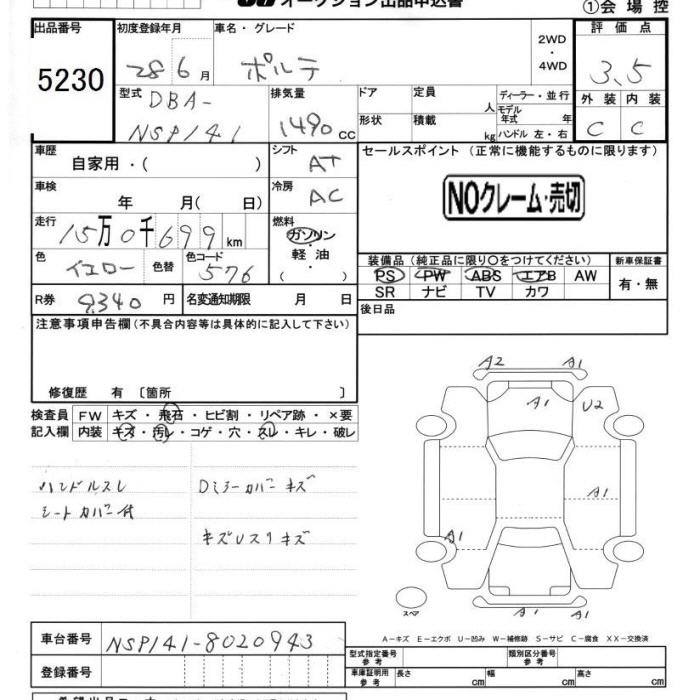 オークション出品申込書
①会場控
出品番号
初度登録年月
車名・グレード
2WD
・
4WD
評価点
5230
28 6月
ポルテ
3.5
型式
DBA-
NSP141
排気量
1490 CC
ドア
定員
人
ディーラー・並行
モデル
年式 年
外装
内装
形状
積載
kg
ハンドル 左・右
C
C
車歴
自家用・( )
シフト
AT
セールスポイント (正常に機能するものに限ります)
車検
年 月( 日)
冷房
AC
NOクレーム・売切
走行
15万0千699km
燃料
ガソリン
・
軽油
・
( )
色
イエロー
色替
色コード
576
装備品(純正品に限り○をつけてください)
新車保証書
PS PW ABS エアB AW
SR ナビ TV カワ
有・無
R券
9340円
名変通知期限 月 日
後日品
注意事項申告欄(不具合内容等は具体的に記入して下さい)
修復歴 有〔箇所 〕
検査員
記入欄
FW
キズ・飛石・ヒビ割・リペア跡・×要
内装
キズ・汚レ・コゲ・穴・スレ・キレ・破レ
ハンドルスレ
シートカバー付
Dミラーカバーキズ
キズUスリキズ
A2
A1
A1
U2
A1
A1
A1
A1
スペア
A-キズ E-エクボ U-凹み W-補修跡 S-サビ C-腐食 XX-交換済
車台番号
NSP141-8020943
登録番号
型式指定番号
参考
類別区分番号
参考
車庫証明用
参考
長さ cm
幅 cm
高さ cm